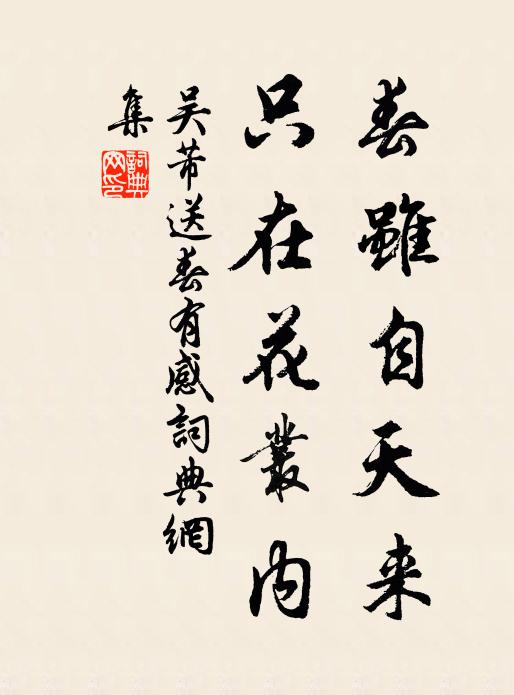 春雖自天来
只在花叢内
吴芾送春有感詞典網
集
詞典
网印